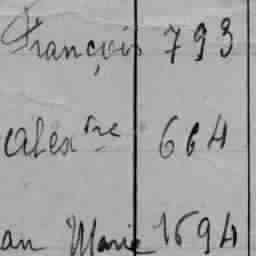 François 793
Alex^dre 664
an Marie 1694